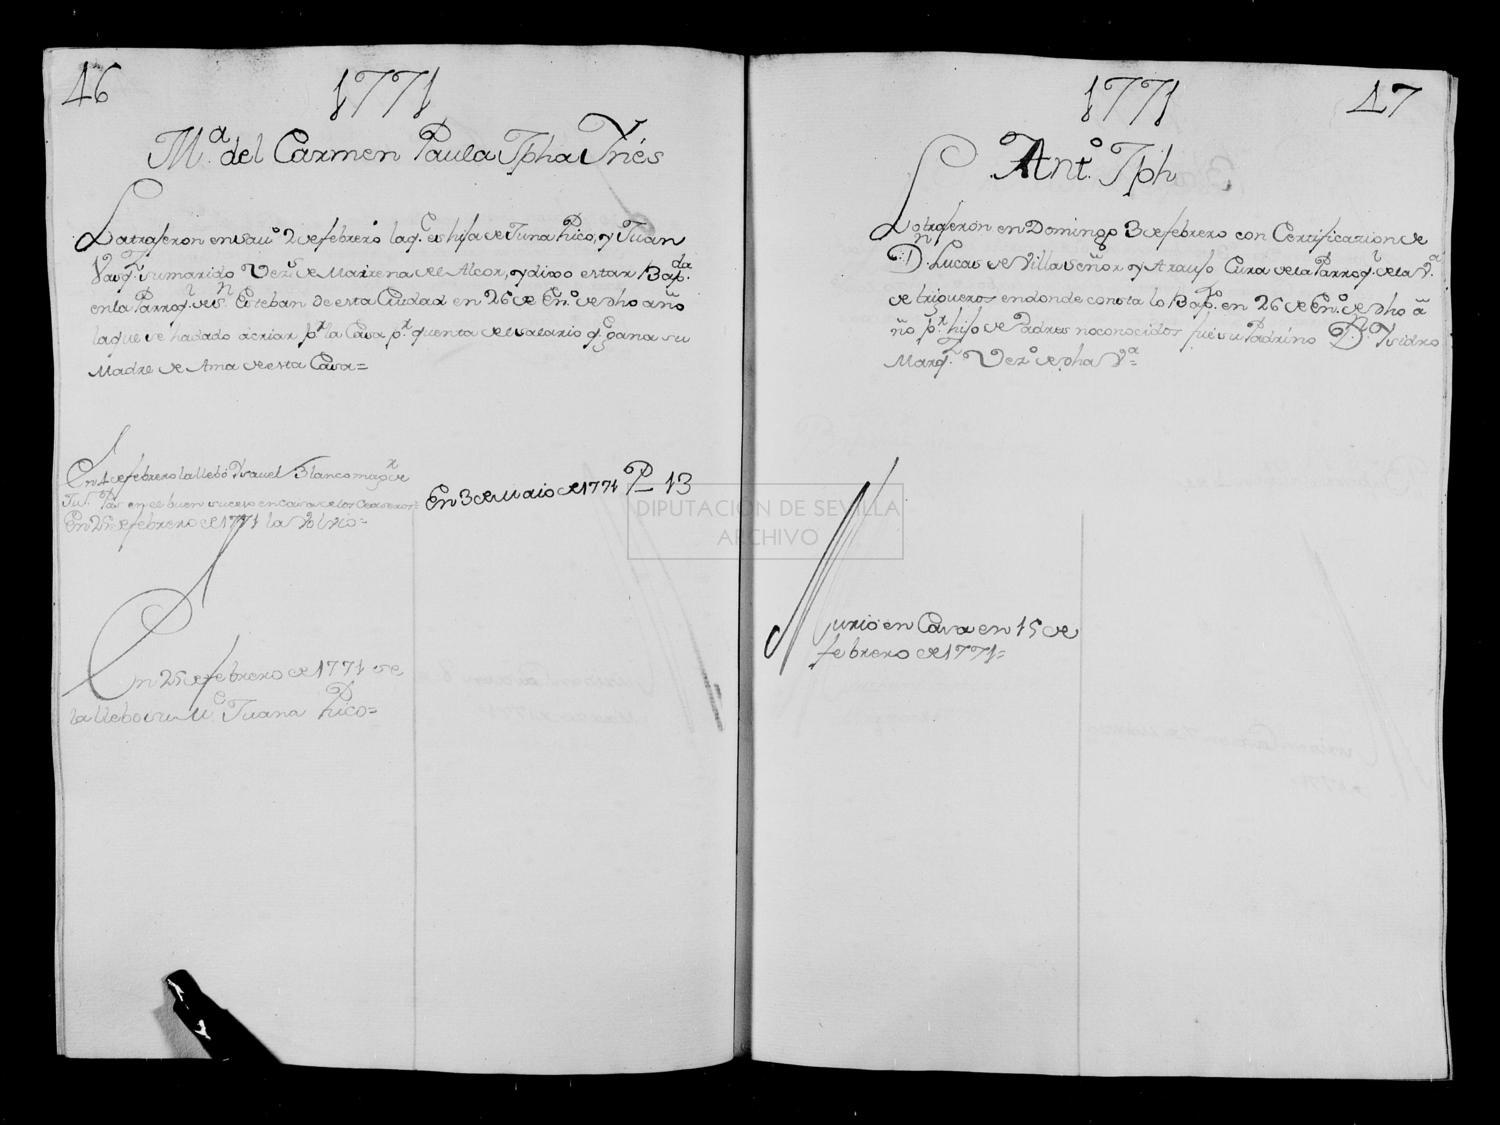 46
1771
M.ª del Carmen Paula Jpha Ynés
La trageron en sau.º 2 de febrero la q.e es hija de Juna Rico, y Juan
Vazq.z su marido Vez.s de Mairena del Alcor, y dixo estar Bap.da
en la Parroq.l de S.n Esteban de esta Ciudad en 26 de En.º de dho año
la que se ha dado à criar p.r la Casa p.r quenta del salario q.e gana su
Madre de Ama de esta Casa=
En 4 de febrero la llebó Ysavel Blanco mug.r de
en el buen suceso en casa de los
En 25 de febrero de 1771 la volvio=
En 3 de Maio de 1771 P 13
En 25 de febrero de 1771 se
la llebo su M.e Juana Rico=
1771
47
Ant.º Jph
Lo trageron en Domingo 3 de febrero con Certificazion de
D.n Lucas de Villaseñor y Araujo Cura de la Parroq.l de la V.ª
de trigueros en donde consta lo Bap.zo en 26 de En.º de dho a
ño p.r hijo de Padres no conocidos fué su Padrino D.n Ysidro
Marq.z Vez.º de dha V.ª=
Murio en Casa en 15 de
febrero de 1771=
DIPUTACIÓN DE SEVILLA
ARCHIVO